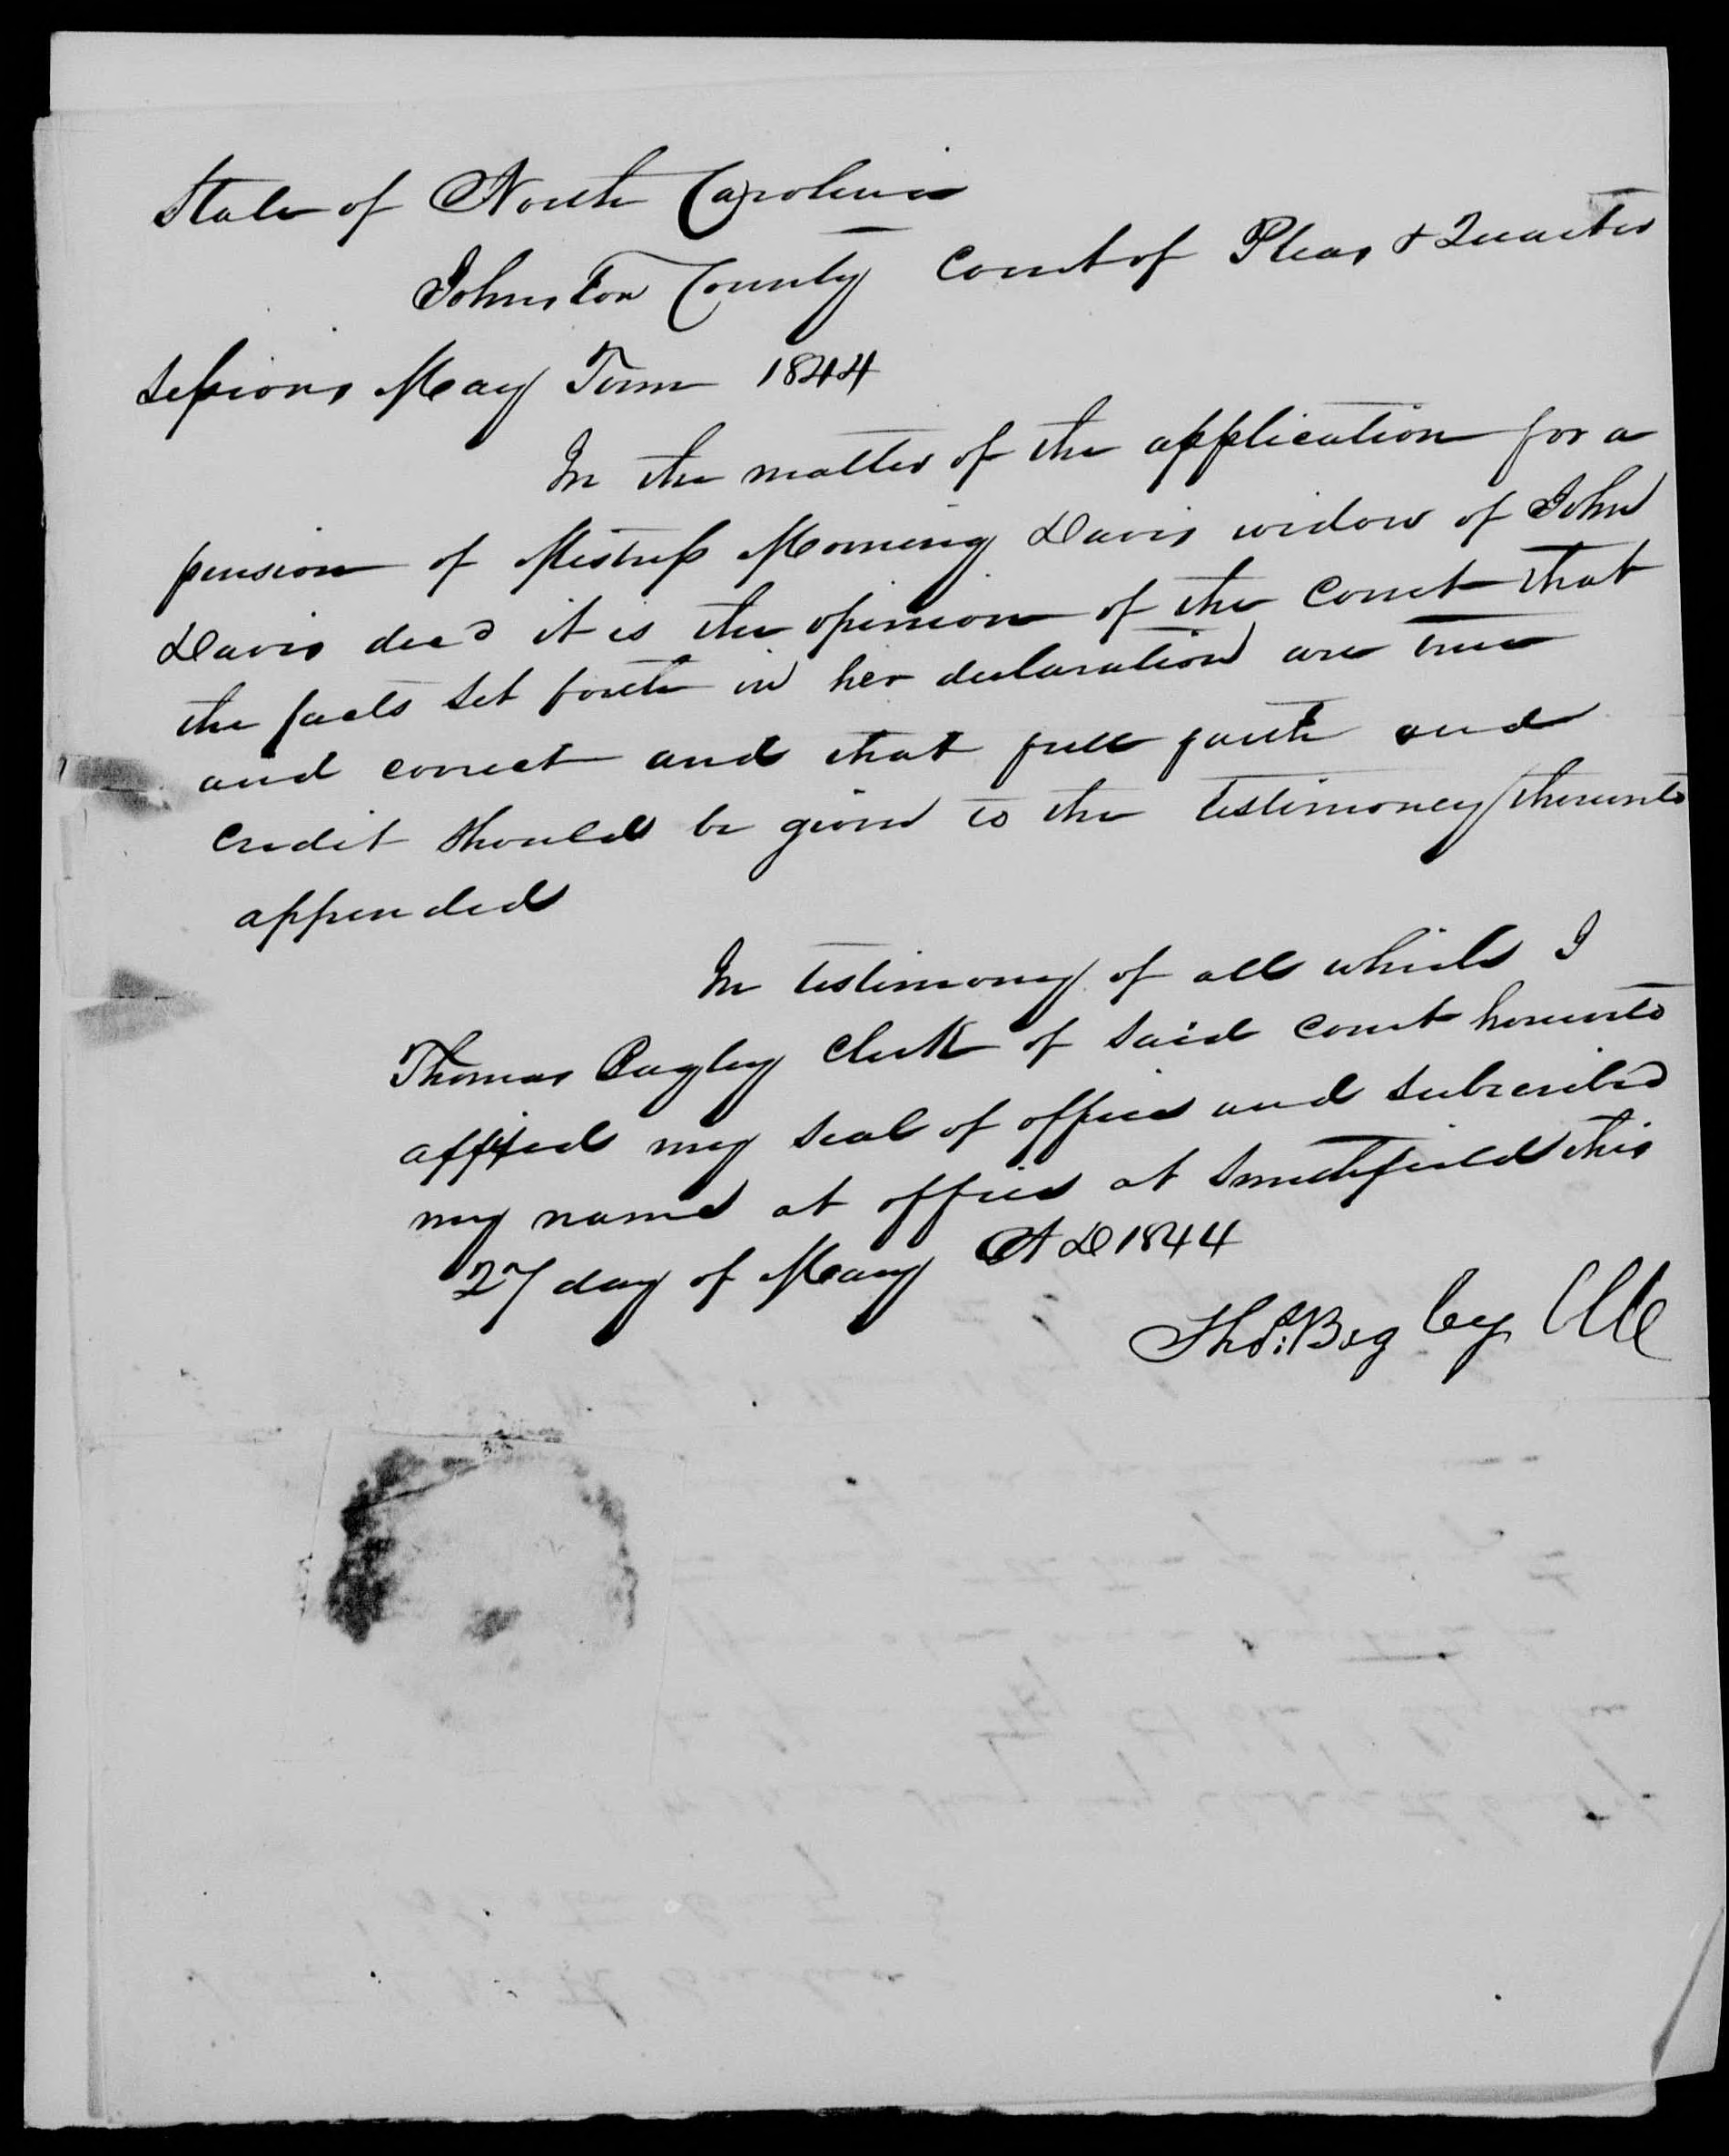 State of North Carolina
Johnston County Court of Pleas & Quarter
Sessions May Term 1844
In the matter of the application for a
pension of Mistress Morning Davis widow of John
Davis decd it is the opinion of the Court that
the facts set forth in her declaration are true
and correct and that full faith and
credit should be given to the testimoney thereunto
appended
In testimony of all which I
Thomas Bagley Clerk of said Court hereunto
affixed my seal of office and subscribed
my name at office at Smithfield this
27 day of May A D 1844
Thos. Bagley Clk